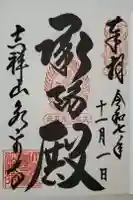 奉拝
令和七年
十一月一日
承陽殿
吉祥山永平寺